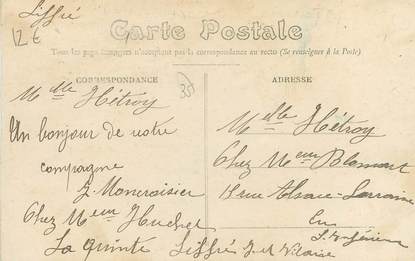 Liffré
12 €
Carte Postale
Tous les pays étrangers n'acceptent pas la correspondance au recto (Se renseigner à la Poste)
CORRESPONDANCE
35
Mlle Hétroy
Un bonjour de notre
compagne
Chez Meur Huchet
La quinte Liffré I et Vilaine
ADRESSE
Melle Hétroy
Chez Meur Blamont
rue Alsace-Lorraine
En